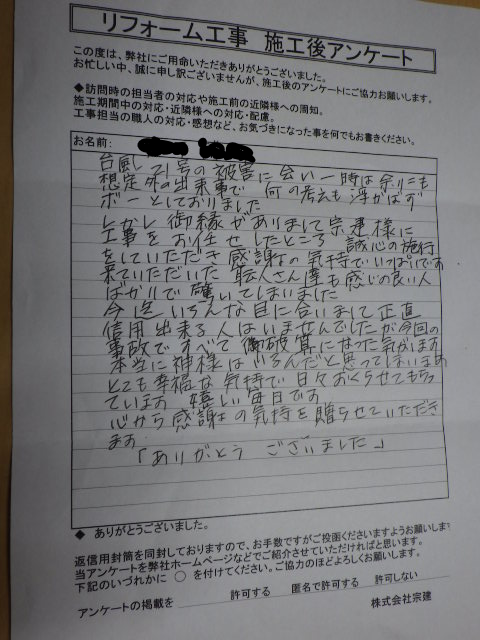 リフォーム工事 施工後アンケート
この度は、弊社にご用命いただきありがとうございました。
お忙しい中、誠に申し訳ございませんが、施工後のアンケートにご協力お願いします。
◆訪問時の担当者の対応や施工前の近隣様への周知。
施工期間中の対応・近隣様への対応・配慮。
工事担当の職人の対応・感想など、お気づきになった事を何でもお書きください。
お名前:
台風21号の被害に会い一時は余りにも
想定外の出来事で 何の考えも浮かばず
ボーとしておりました
しかし御縁がありまして宗建様に
工事をお任せしたところ 誠心の施行
をしていただき感謝の気持でいっぱいです
来ていただいた 職人さん達も感じの良い人
ばかりで驚いてしまいました
今迄いろんな目に合いまして正直
信用出来る人はいませんでしたが今回の
事故ですべて破算になった気がします
本当に神様はいるんだと思ってしまいます
とても幸福な気持で日々おくらせてもらっ
ています 嬉しい毎日です
心から感謝の気持を贈らせていただき
ます
「ありがとう ございました」
◆ ありがとうございました。
返信用封筒を同封しておりますので、お手数ですがご投函くださいますようお願いしま
当アンケートを弊社ホームページなどでご紹介させていただければと思います。
下記のいづれかに ○ を付けてください。ご協力のほどよろしくお願いします。
アンケートの掲載を 許可する 匿名で許可する 許可しない
株式会社宗建